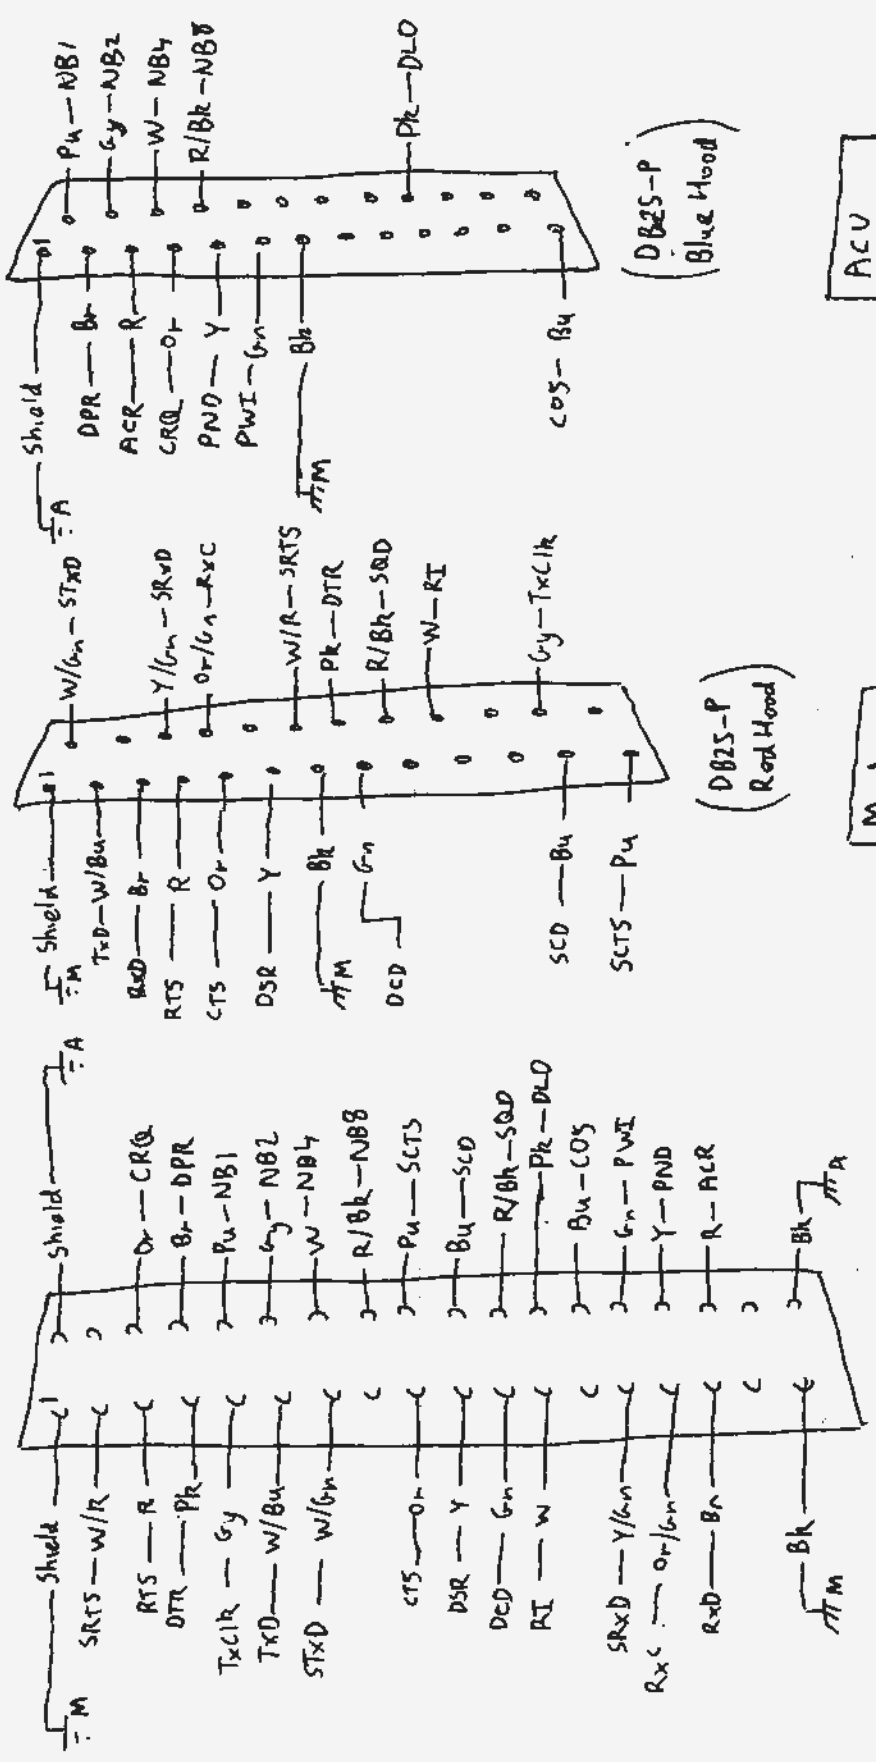 Shield
M
SRTS — W/R
RTS — R
DTR — Pk
TxClk — Gy
TxD — W/Bu
STxD — W/Gn
CTS — Or
DSR — Y
DCD — Gn
RI — W
SRxD — Y/Gn
RxC — Or/Gn
RxD — Br
Bk
M
1
Shield
A
Or — CRQ
Br — DPR
Pu — NB1
Gy — NB2
W — NB4
R/Bk — NB8
Pu — SCTS
Bu — SCD
R/Bk — SQD
Pk — DLO
Bu — COS
Gn — PWI
Y — PND
R — ACR
Bk
A
Shield
M
TxD — W/Bu
RxD — Br
RTS — R
CTS — Or
DSR — Y
Bk
M
Gn
DCD
SCD — Bu
SCTS — Pu
1
W/Gn — STxD
Y/Gn — SRxD
Or/Gn — RxC
W/R — SRTS
Pk — DTR
R/Bk — SQD
W — RI
Gy — TxClk
(DB25-P
Red Hood)
Shield
A
DPR — Br
ACR — R
CRQ — Or
PND — Y
PWI — Gn
Bk
M
COS — Bu
1
Pu — NB1
Gy — NB2
W — NB4
R/Bk — NB8
Pk — DLO
(DB25-P
Blue Hood)
ACU